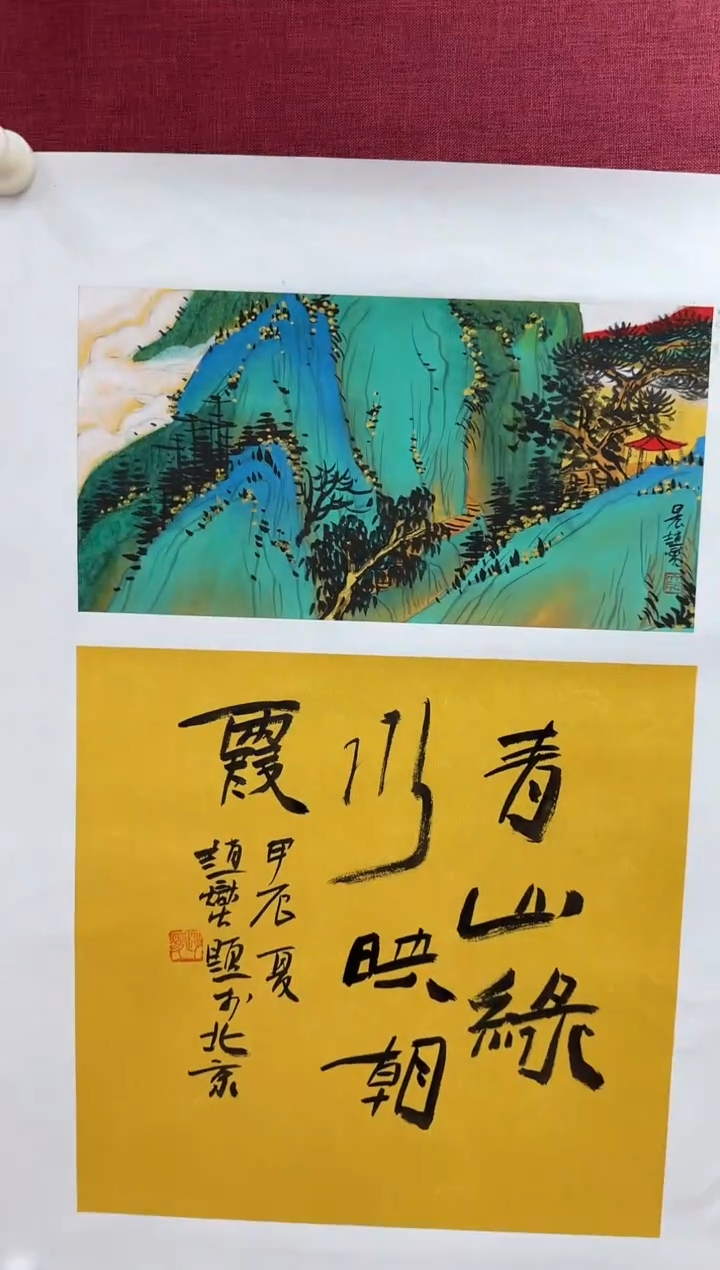 青山綠
水映朝
霞
甲辰夏
趙燮題於北京